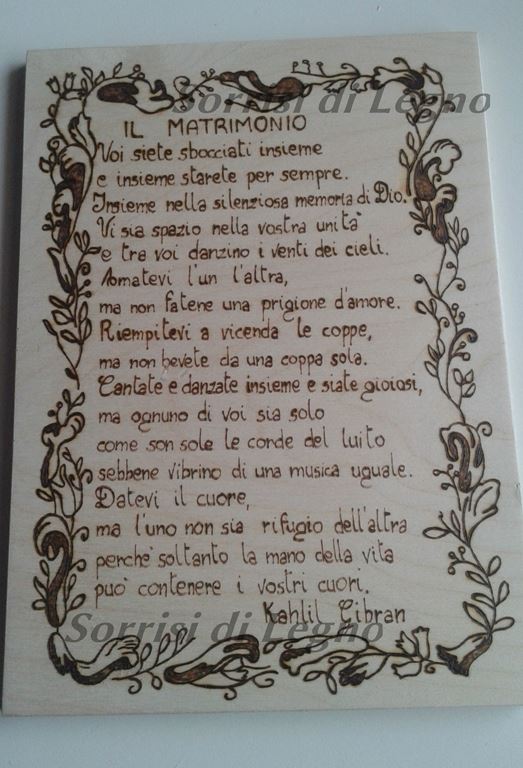 Sorrisi di Legno
IL MATRIMONIO
Voi siete sbocciati insieme
e insieme starete per sempre.
Insieme nella silenziosa memoria di Dio.
Vi sia spazio nella vostra unità
e tra voi danzino i venti dei cieli.
Amatevi l'un l'altra,
ma non fatene una prigione d'amore.
Riempitevi a vicenda le coppe,
ma non bevete da una coppa sola.
Cantate e danzate insieme e siate gioiosi,
ma ognuno di voi sia solo
come son sole le corde del luito
sebbene vibrino di una musica uguale.
Datevi il cuore,
ma l'uno non sia rifugio dell'altra
perchè soltanto la mano della vita
può contenere i vostri cuori.
Kahlil Gibran
Sorrisi di Legno